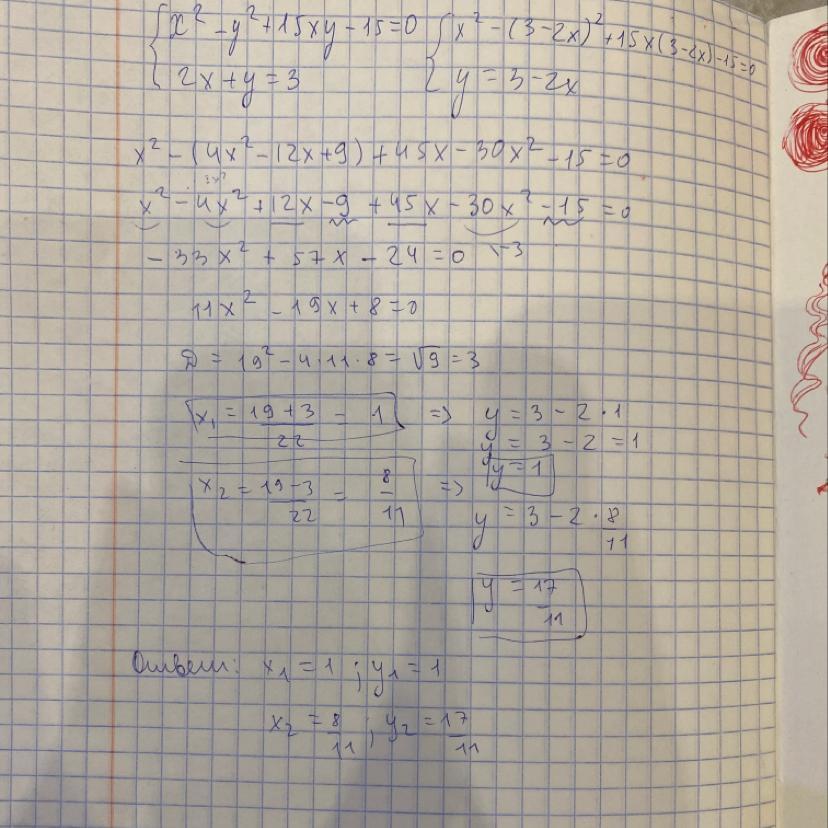 x² - y² + 15xy - 15 = 0
2x + y = 3
x² - (3 - 2x)² + 15x(3 - 2x) - 15 = 0
y = 3 - 2x
x² - (4x² - 12x + 9) + 45x - 30x² - 15 = 0
x² - 4x² + 12x - 9 + 45x - 30x² - 15 = 0
- 33x² + 57x - 24 = 0 \ -3
11x² - 19x + 8 = 0
D = 19² - 4 · 11 · 8 = √9 = 3
x₁ = 19 + 3 / 22 = 1 => y = 3 - 2 · 1
y = 3 - 2 = 1
y = 1
x₂ = 19 - 3 / 22 = 8/11 => y = 3 - 2 · 8/11
y = 17/11
Ответ: x₁ = 1 ; y₁ = 1
x₂ = 8/11 ; y₂ = 17/11